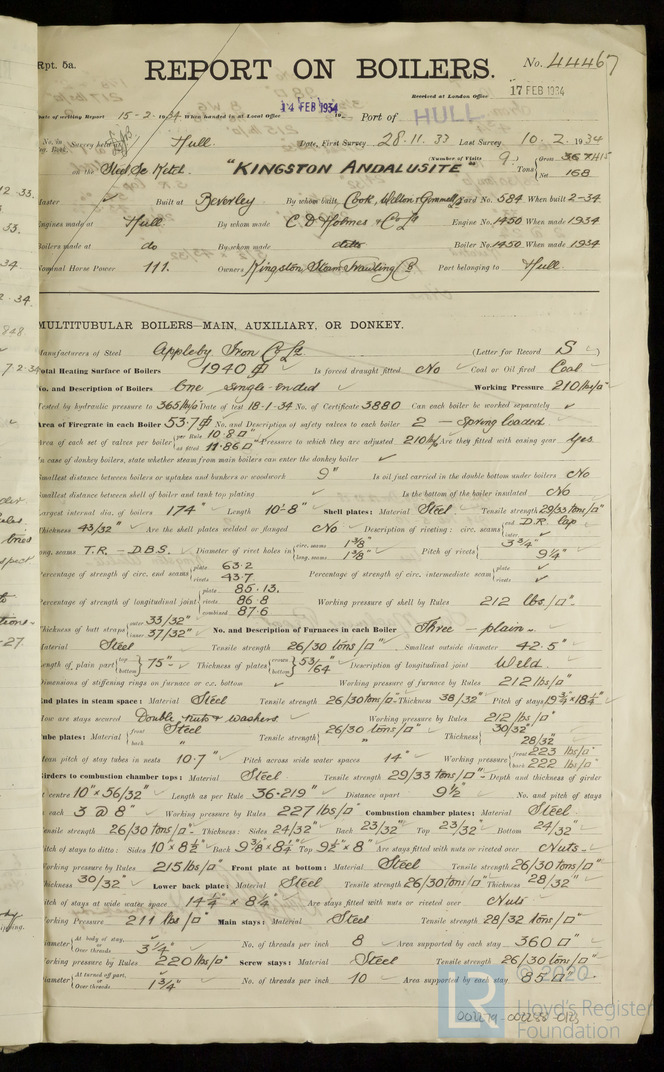 Rpt. 5a.
REPORT ON BOILERS.
No. 44467
Received at London Office 17 FEB 1934
Date of writing Report 15-2-1934 When handed in at Local Office 14 FEB 1934 19 Port of HULL
No. in Reg. Book. Survey held at Hull. Date, First Survey 28.11.33 Last Survey 10.2.1934
on the Steel Sc Ketch "KINGSTON ANDALUSITE" (Number of Visits 9.) Tons Gross 367 Net 168
Master Built at Beverley By whom built Cook, Welton & Gemmell Ld Yard No. 584 When built 2-34
Engines made at Hull By whom made C. D Holmes & Co Ld Engine No. 1450 When made 1934
Boilers made at do By whom made ditto Boiler No. 1450 When made 1934
Nominal Horse Power 111. Owners Kingston Steam Trawling Co Port belonging to Hull.
MULTITUBULAR BOILERS—MAIN, AUXILIARY, OR DONKEY.
Manufacturers of Steel Appleby Iron Co Ld (Letter for Record S)
Total Heating Surface of Boilers 1940 Is forced draught fitted No Coal or Oil fired Coal
No. and Description of Boilers One single-ended Working Pressure 210 lbs/□"
Tested by hydraulic pressure to 365 lbs/□" Date of test 18-1-34 No. of Certificate 3880 Can each boiler be worked separately ✓
Area of Firegrate in each Boiler 53.7 No. and Description of safety valves to each boiler 2 — Spring loaded
Area of each set of valves per boiler per Rule 10.8 □" as fitted 11.86 □" Pressure to which they are adjusted 210 lbs Are they fitted with easing gear Yes
In case of donkey boilers, state whether steam from main boilers can enter the donkey boiler ✓
Smallest distance between boilers or uptakes and bunkers or woodwork 9" Is oil fuel carried in the double bottom under boilers No
Smallest distance between shell of boiler and tank top plating ✓ Is the bottom of the boiler insulated No
Largest internal dia. of boilers 174" Length 10'-8" Shell plates: Material Steel Tensile strength 29/33 tons/□"
Thickness 43/32" Are the shell plates welded or flanged No Description of riveting: circ. seams end D.R. Lap inter ✓
Long. seams T.R. — D.B.S. Diameter of rivet holes in circ. seams 1 3/8" long. seams 1 3/8" Pitch of rivets 3 3/4" 9 1/4"
Percentage of strength of circ. end seams plate 63.2 rivets 43.7 Percentage of strength of circ. intermediate seam plate ✓ rivets ✓
Percentage of strength of longitudinal joint plate 85.13. rivets 86.8 combined 87.6 Working pressure of shell by Rules 212 lbs./□"
Thickness of butt straps outer 33/32" inner 37/32" No. and Description of Furnaces in each Boiler Three — plain
Material Steel Tensile strength 26/30 tons/□" Smallest outside diameter 42.5"
Length of plain part top bottom 75" Thickness of plates crown bottom 53/64" Description of longitudinal joint Weld.
Dimensions of stiffening rings on furnace or c.c. bottom ✓ Working pressure of furnace by Rules 212 lbs/□"
End plates in steam space: Material Steel Tensile strength 26/30 tons/□" Thickness 38/32" Pitch of stays 19 3/4" x 18 1/4"
How are stays secured Double nuts & washers. Working pressure by Rules 212 lbs/□"
Tube plates: Material front Steel back " Tensile strength 26/30 tons/□" " Thickness 30/32" 28/32"
Mean pitch of stay tubes in nests 10.7" Pitch across wide water spaces 14" Working pressure front 223 lbs/□" back 222 lbs/□"
Girders to combustion chamber tops: Material Steel Tensile strength 29/33 tons/□" Depth and thickness of girder
at centre 10" x 56/32" Length as per Rule 36.219" Distance apart 9 1/2" No. and pitch of stays
in each 3 @ 8" Working pressure by Rules 227 lbs/□" Combustion chamber plates: Material Steel.
Tensile strength 26/30 tons/□" Thickness: Sides 24/32" Back 23/32" Top 23/32" Bottom 24/32"
Pitch of stays to ditto: Sides 10" x 8 1/2" Back 9 3/8" x 8 1/4" Top 9 1/2" x 8" Are stays fitted with nuts or riveted over Nuts.
Working pressure by Rules 215 lbs/□" Front plate at bottom: Material Steel Tensile strength 26/30 tons/□"
Thickness 30/32" Lower back plate: Material Steel Tensile strength 26/30 tons/□" Thickness 28/32"
Pitch of stays at wide water space 14 1/4" x 8 1/4" Are stays fitted with nuts or riveted over Nuts
Working Pressure 211 lbs/□" Main stays: Material Steel Tensile strength 28/32 tons/□"
Diameter At body of stay, or Over threads 3 1/4" No. of threads per inch 8 Area supported by each stay 360 □"
Working pressure by Rules 220 lbs/□" Screw stays: Material Steel Tensile strength 26/30 tons/□"
Diameter At turned off part, or Over threads 1 3/4" No. of threads per inch 10 Area supported by each stay 85 □"
LR © 2020
Lloyd's Register
Foundation
002279-002288-0123